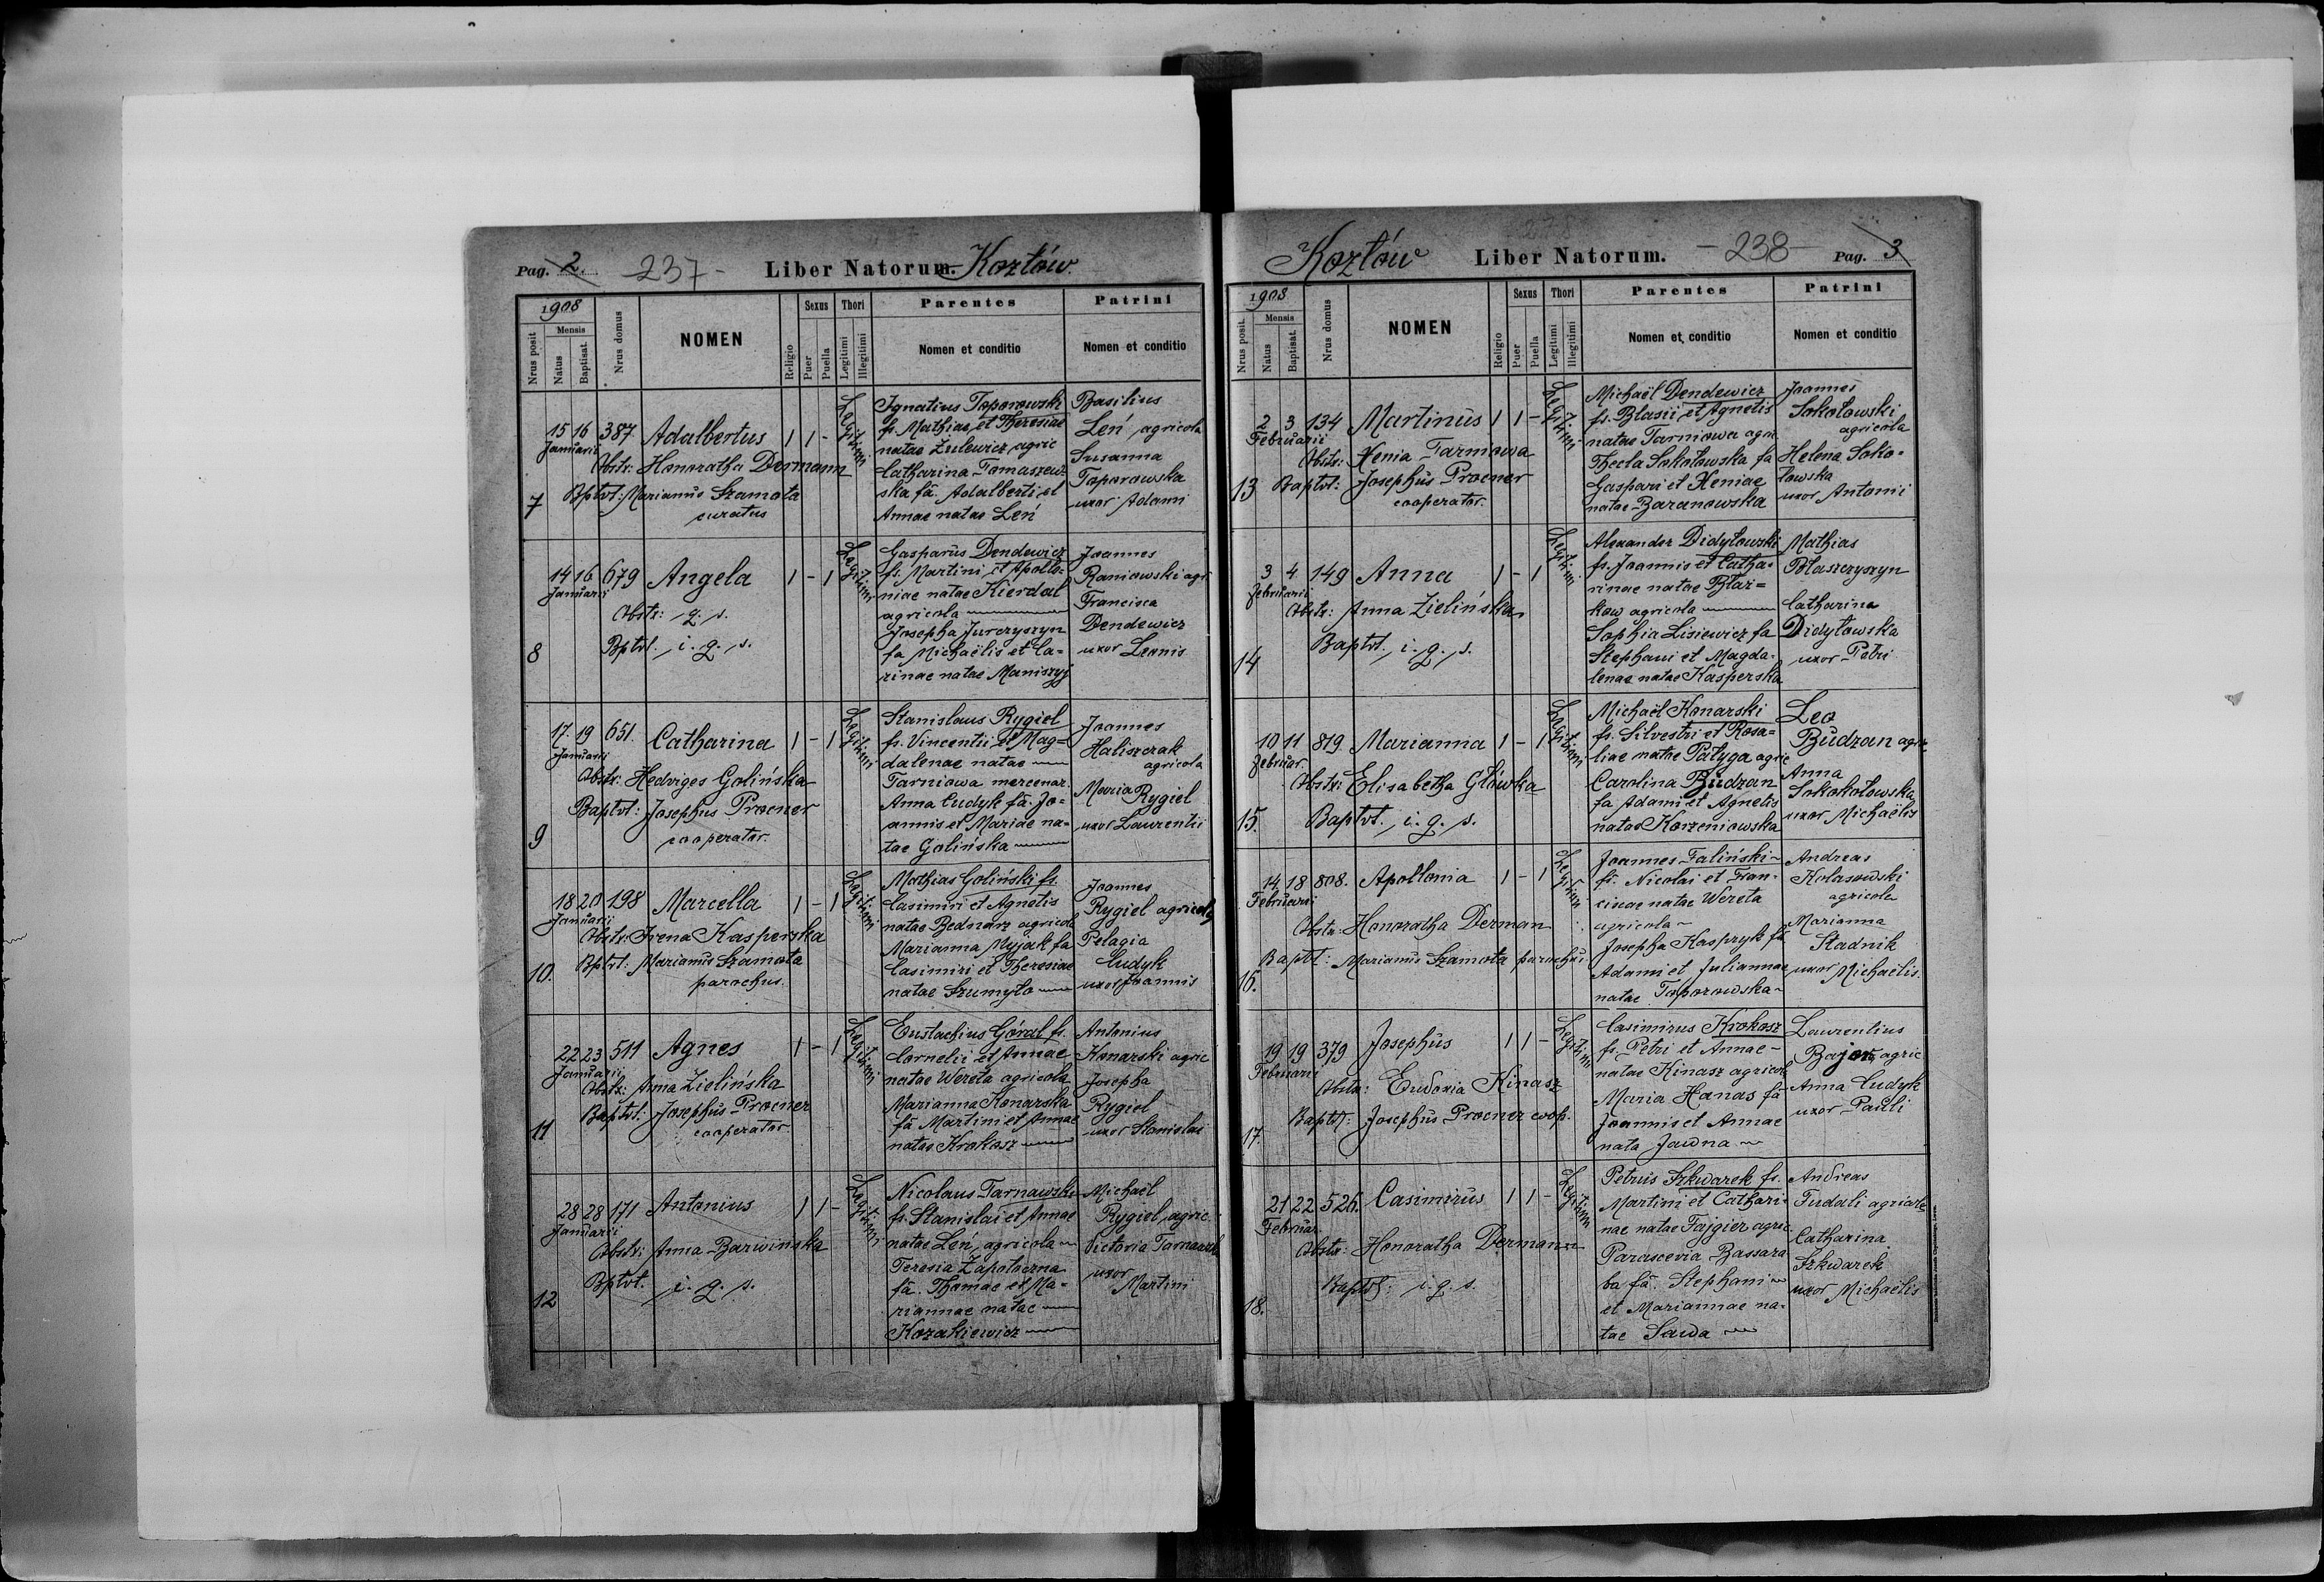 Pag. 2. 237 - Liber Natorum. Kozłów.
1908
Nrus posit
Mensis
Natus
Baptisat.
Nrus domus
NOMEN
Religio
Sexus
Puer
Puella
Thori
Legitimi
Illegitimi
Parentes
Nomen et conditio
Patrini
Nomen et conditio
7
15 16 387 Adalbertus 1 1 -
Januarii
Obstr: Honoratha Dermann
Bptvt: Marianus Szamota
curatus
Legitimi
Ignatius Toporowski
fs. Mathiae et Theresiae
natae Żulewicz agric
Catharina Tomaszew
ska fa. Adalberti et
Annae natae Leń
Basilius
Leń agricola
Susanna
Toporowska
uxor Adami
8
14 16 679 Angela 1 - 1
Januarii
Obstr: q. s.
Bptvt. i. q. s.
Legitimi
Gasparus Dendewicz
fs. Martini et Apollo-
niae natae Kierdal
agricola
Josepha Jurczyszyn
fa Michaëlis et Ca-
rinae natae Maniszyj
Joannes
Raniowski agr
Francisca
Dendewicz
uxor Leonis
9
17. 19 651. Catharina 1 - 1
Januarii
Obstr: Hedviges Golińska
Baptvt: Josephus Procner
cooperator.
Legitimi
Stanislaus Rygiel
fs. Vincentii et Mag=
dalenae natae
Tarniowa mercenar.
Anna Cudyk fa. Jo=
annis et Mariae na-
tae Golińska
Joannes
Haliszczak
agricola
Maria Rygiel
uxor Laurentii
10.
18 20 198 Marcella 1 - 1
Januarii
Obstr: Irena Kasperska
Bptvt: Marianus Szamota
parochus.
Legitimi
Mathias Goliński fs.
Casimiri et Agnetis
natae Bednarz agricol
Marianna Myjak fa
Casimiri et Theresiae
natae Szumyło
Joannes
Rygiel agricola
Pelagia
Cudyk
uxor Joannis
11
22 23 511 Agnes 1 - 1
Januarii
Obstr: Anna Zielińska
Baptvt: Josephus Procner
cooperator.
Legitimi
Eustachius Góral fs.
Cornelii et Annae
natae Wereta agricola
Marianna Konarska
fa Martini et Annae
natae Krokosz
Antonius
Konarski agric
Josepha
Rygiel
uxor Stanislai
12
28 28 171 Antonius 1 1 -
Januarii
Obstr: Anna Barwińska
Bptvt. i. q. s.
Legitimi
Nicolaus Tarnawski
fs. Stanislai et Annae
natae Leń, agricola
Teresia Zapotoczna
fa. Thomae et Ma-
riannae natae
Kozakiewicz
Michaël
Rygiel, agric.
Victoria Tarnawsk
uxor
Martini
Kozłów Liber Natorum. - 238 - Pag. 3
1908
Nrus posit.
Mensis
Natus
Baptisat.
Nrus domus
NOMEN
Religio
Sexus
Puer
Puella
Thori
Legitimi
Illegitimi
Parentes
Nomen et conditio
Patrini
Nomen et conditio
13
2 3 134 Martinus 1 1 -
Februarii
Obstr: Xenia Tarniowa
Baptvt: Josephus Procner
cooperator.
Legitimi
Michaël Dendewicz
fs. Blasii et Agnetis
natae Tarniowa agri
Thecla Sokołowska fa
Gaspari et Xeniae
natae Baranowska
Joannes
Sokołowski
agricola
Helena Soko-
łowska
uxor Antonii
14
3 4 149 Anna 1 - 1
Februarii
Obstr: Anna Zielińska
Baptvt. i. q. s.
Legitimi
Alexander Didyłowski
fs. Joannis et Catha-
rinae natae Błaż=
kow agricola
Sophia Lisiewicz fa
Stephani et Magda-
lenae natae Kasperska
Mathias
Błaszczyszyn
Catharina
Didyłowska
uxor Petri
15.
10 11 819. Marianna 1 - 1
Februar.
Obstr: Elisabetha Główka
Baptvt. i. q. s.
Legitimi
Michaël Konarski
fs. Silvestri et Rosa=
liae natae Pałyga agric
Carolina Budzan
fa Adami et Agnetis
natae Korzeniowska
Leo
Budzan agric.
Anna
Sokokołowska
uxor Michaëlis
16.
14 18 808. Apollonia 1 - 1
Februarii
Obstr: Honoratha Derman
Baptvt: Marianus Szamota parochus
Legitimi
Joannes Faliński
fs. Nicolai et Fran-
ciscae natae Wereta
agricola
Josepha Kasprzyk fa
Adami et Juliannae
natae Toporowska
Andreas
Kolasowski
agricola
Marianna
Stadnik
uxor Michaëlis.
17.
19 19 379 Josephus 1 1 -
Februarii
Obstr: Eudoxia Kinasz
Baptvt: Josephus Procner coop.
Legitimi
Casimirus Krokosz
fs. Petri et Annae
natae Kinasz agricol
Maria Hanas fa
Joannis et Annae
nata Jawna
Laurentius
Bajor, agric
Anna Cudyk
uxor Pauli
18.
21 22 526. Casimirus 1 1 -
Februar.
Obstr: Honoratha Dermann
Baptvt: i. q. s.
Legitimi
Petrus Szkwarek fs.
Martini et Cathari-
nae natae Fajgier agric.
Parascevia Bassara
ba fa. Stephani
et Mariannae na-
tae Sawa
Andreas
Fudali agricola
Catharina
Szkwarek
uxor Michaëlis